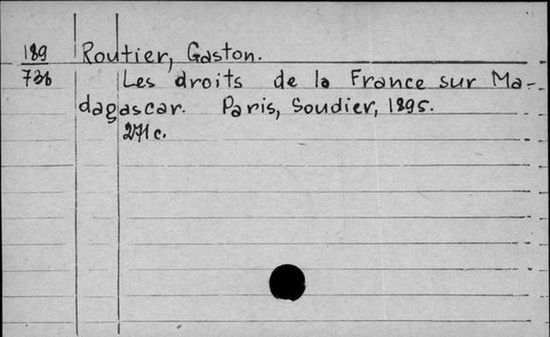 189 Routier, Gaston.
736 Les droits de la France sur Ma-
dagascar. Paris, Soudier, 1895.
271 c.